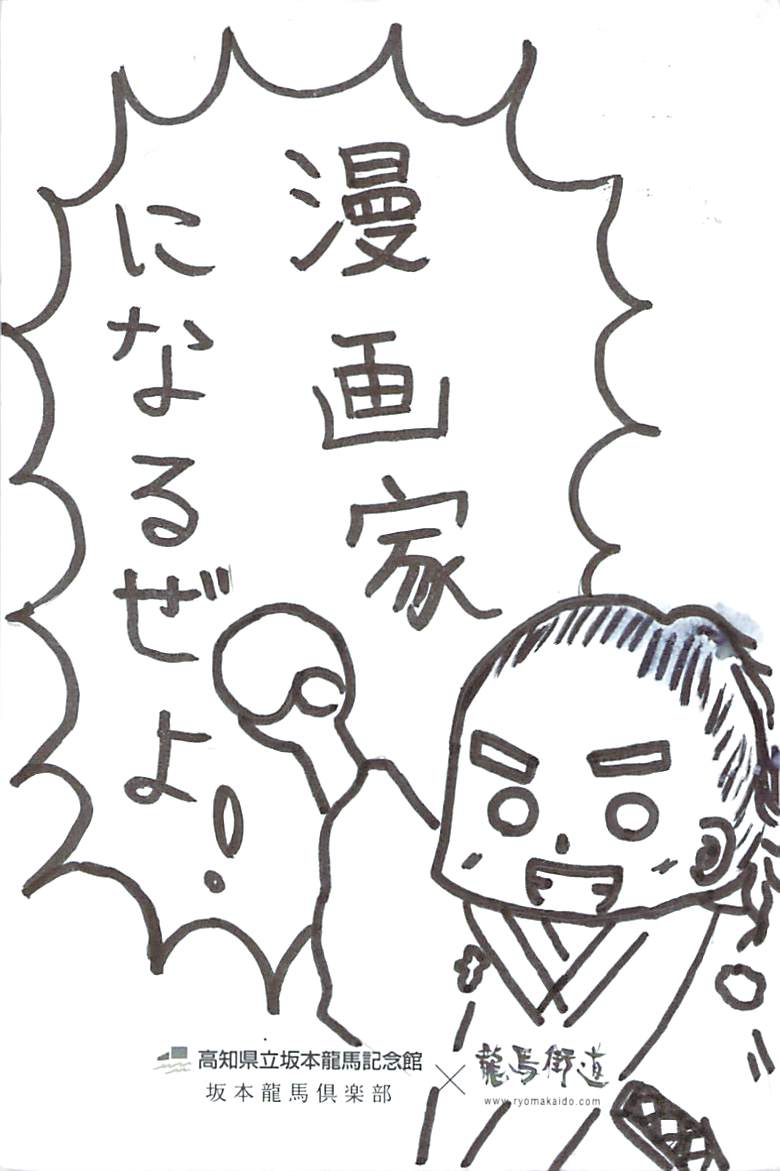 漫画家
になるぜよ!
高知県立坂本龍馬記念館
坂本龍馬倶楽部
×
龍馬街道
www.ryomakaido.com